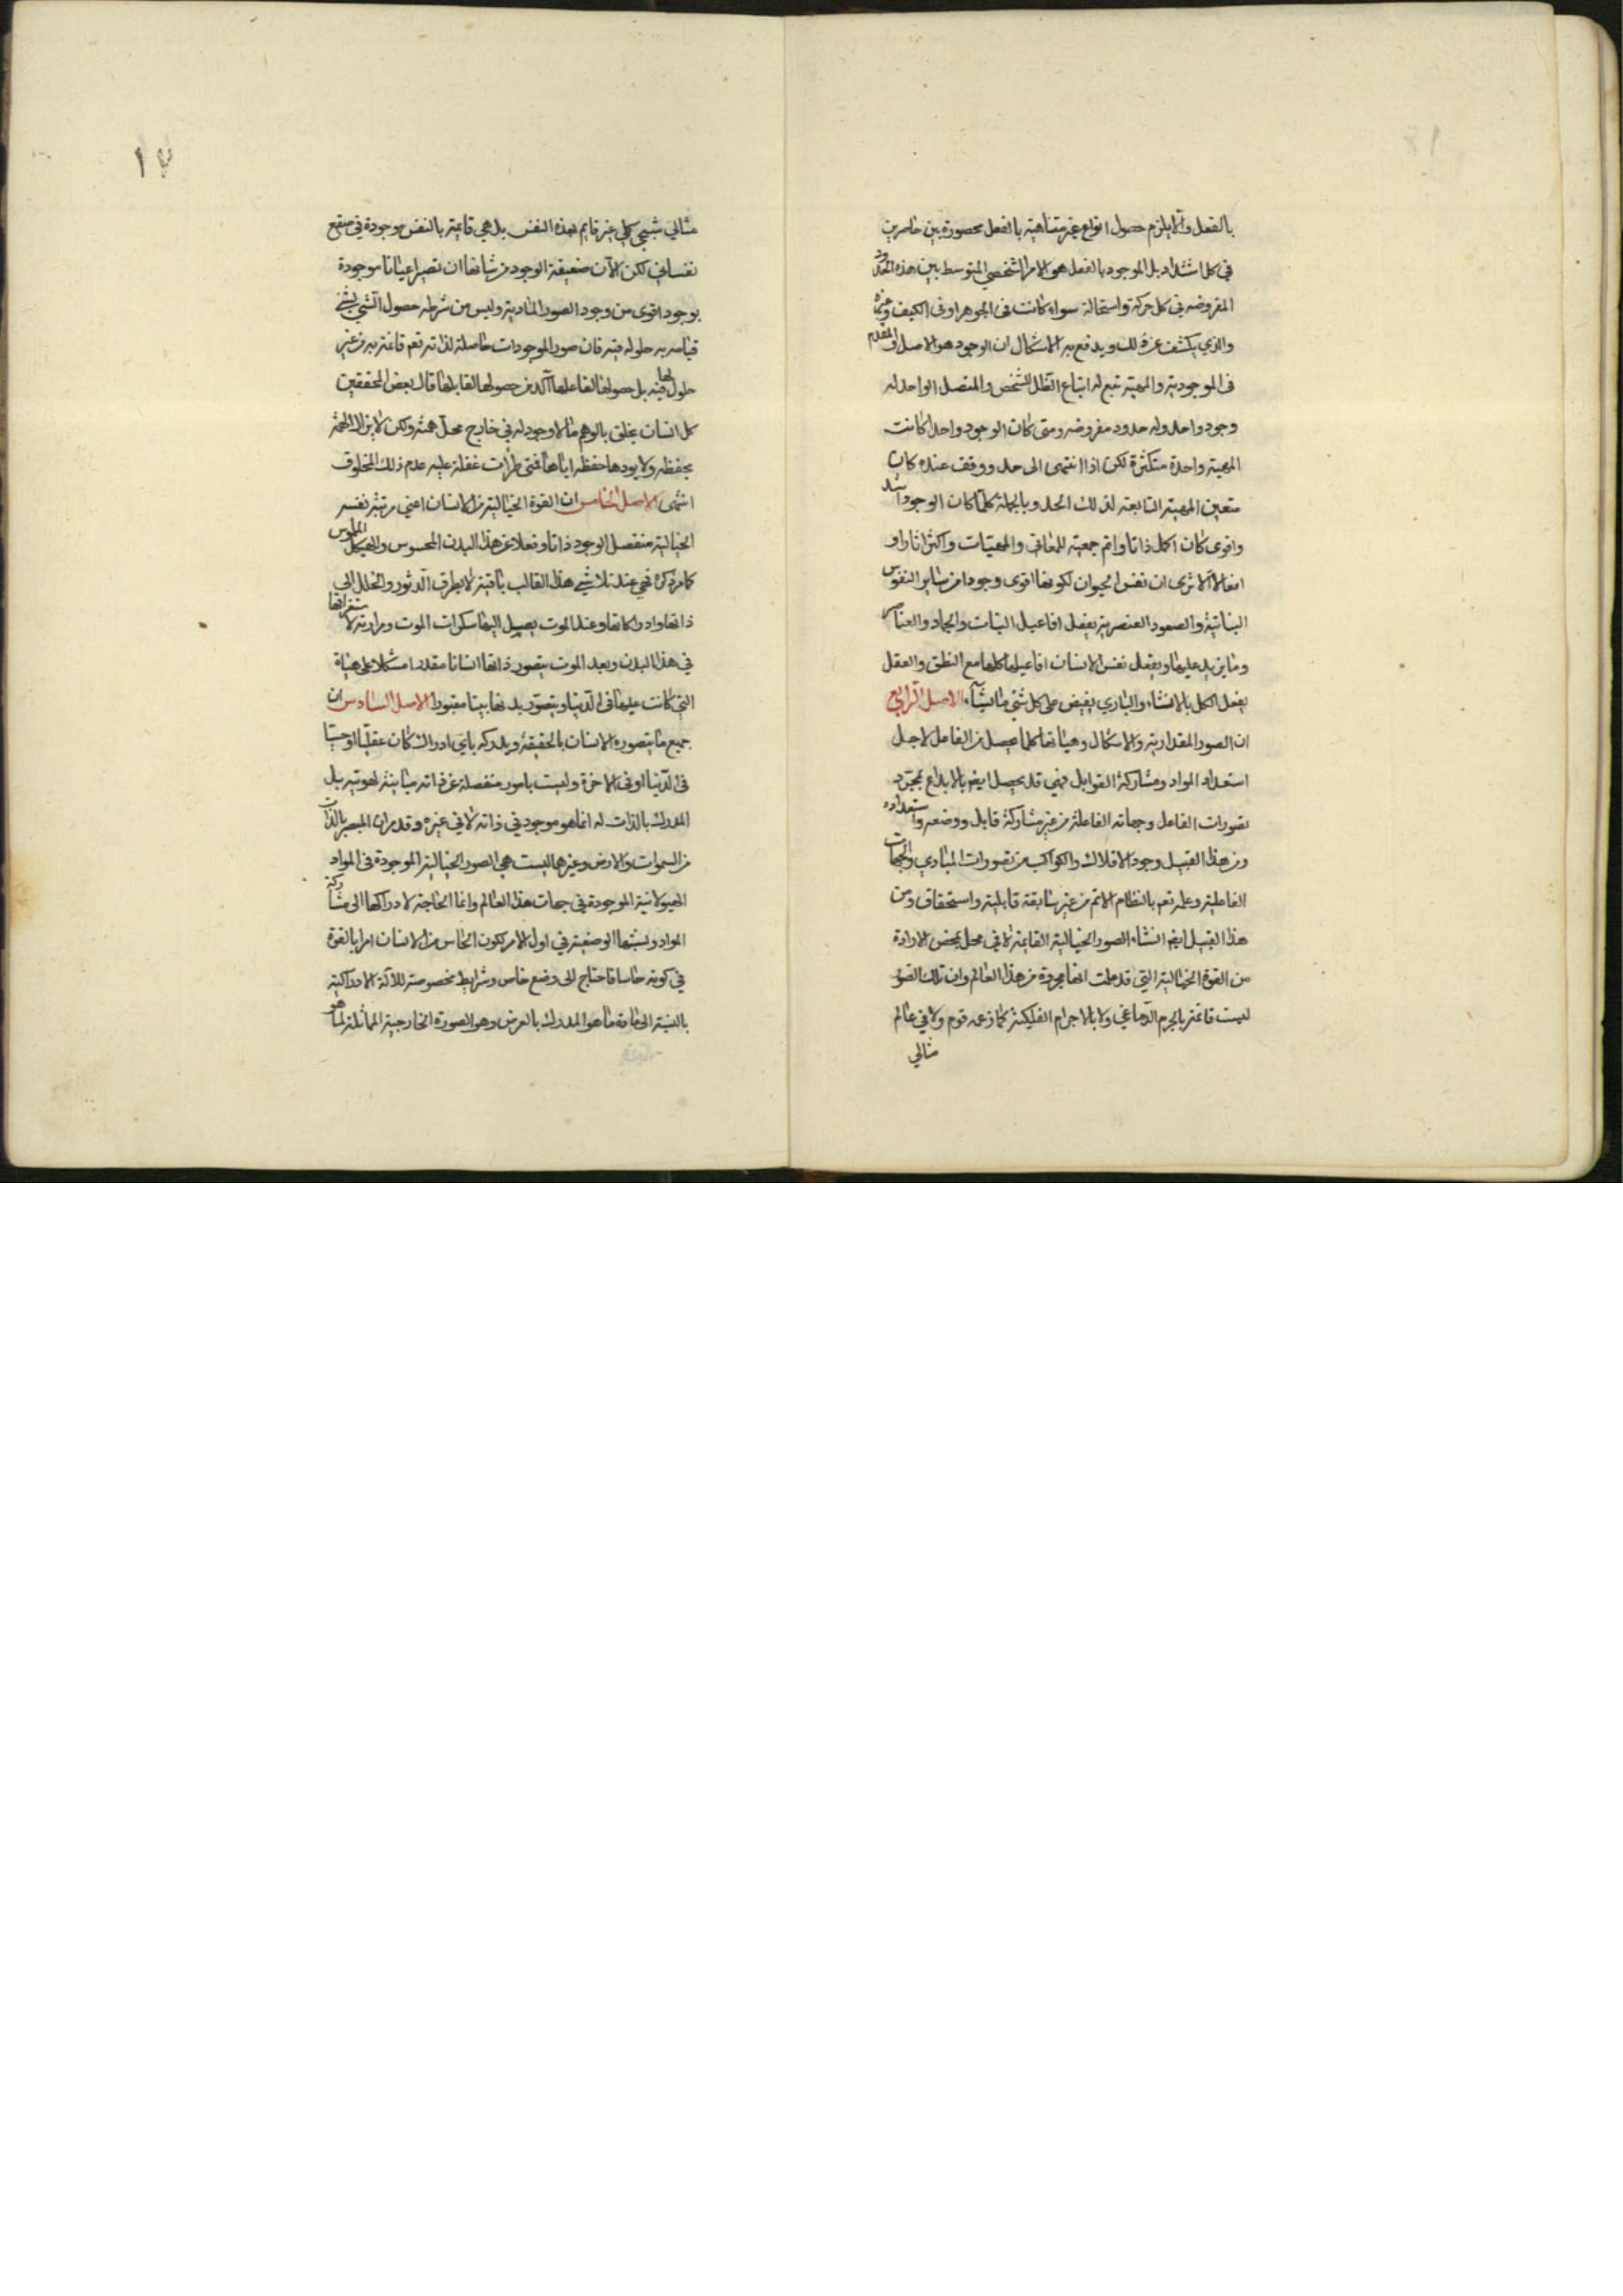 بالفعل والا يلزم حصول انواع غير متناهية بالفعل محصورة بين حاصرين
في كل اشتداد بل الموجود بالفعل هو الامر الشخصي المتوسط بين هذه الحدود
المفروضه في كل حركة واستحالة سواء كانت في الجوهر او في الكيف وغيره
والذي ينكشف عن ذلك ويدفع به الاشكال ان الوجود هو الاصل والمقدم
في الموجودية والمهية تبع له اتباع الظل للشخص والمتصل الواحد له
وجود واحد وله حدود مفروضه ومتى كان الوجود واحدا كانت
المهية واحدة متكثرة لكن اذا انتهى الى حد ووقف عنده كان
متعين المهية التابعة لذلك الحد وبالجملة كلما كان الوجود اشد
واقوى كان اكمل ذاتا واتم جمعية للمعاني والمهيات واكثر اثارا و
افعالا الا ترى ان نفس الحيوان لكونها اقوى وجودا من ساير النفوس
النباتية والصور العنصرية يفعل افاعيل النبات والجماد والعناصر
وما يزيد عليها ويفعل نفس الانسان افاعيلها كلها مع النطق والعقل
يفعل الكل بالانشاء والباري يفيض على كل شئ ما يشآء الاصل الرابع
ان الصور المقدارية والاشكال وهيئاتها كما يحصل من الفاعل لاجل
استعداد المواد ومشاركة القوابل فهي قد يحصل ايضا بالابداع بمجرد
تصورات الفاعل وجهاته الفاعلة من غير مشاركة قابل ووضعه واستعداده
ومن هذا القبيل وجود الافلاك والكواكب من تصورات المبادي والجهات
الفاعلية وعلمه تعم بالنظام الاتم من غير سابقة قابلية واستحقاق ومن
هذا القبيل ايضا انشاء الصور الخيالية القايمة لا في محل بمحض الارادة
من القوة الخيالية التي قد علمت انها مجردة من هذا العالم وان تلك الصور
ليست قائمة بالجرم الدماغي ولا بالاجرام الفلكية كما زعمه قوم ولا في عالم
مثالي
١٧
مثالي شبحي كلي غير قايم بهذه النفس بل هي قايمة بالنفس موجودة في صقع
نفساني لكن الآن ضعيفة الوجود من شانها ان تصير اعيانا موجودة
بوجود اقوى من وجود الصور المادية وليس من شرط حصول الشي لشئ
قيامه به حلوله فيه فان صور الموجودات حاصلة لذاته تعم قائمة به من غير
حلول لها فيه بل حصولها لفاعلها آكد من حصولها لقابلها قال بعض المحققين
كل انسان يخلق بالوهم ما لا وجود له في خارج محل همته ولكن لا يزال الهمة
يحفظه ولا يودها حفظه اياها فمتى طرات غفلة عليه عدم ذلك المخلوق
انتهى الاصل الخامس ان القوة الخيالية من الانسان اعني مرتبة نفسه
الخيالية منفصل الوجود ذاتا وفعلا عن هذا البدن المحسوس والهيكل الملموس
كما مر ذكره فهي عند تلاشي هذا القالب باقية لا يطرق الدثور والخلل الى
ذاتها وادراكاتها وعند الموت يصل اليها سكرات الموت ومرارته لاستغراقها
في هذا البدن وبعد الموت يتصور ذاتها انسانا مقدرا مشكلا على هيئة
التي كانت عليها في الدنيا ويتصور بدنها ميتا مقبورا الاصل السادس ان
جميع ما يتصوره الانسان بالحقيقة ويدركه باي ادراك كان عقليا او حسيا
في الدنيا او في الاخرة وليست بامور منفصلة عن ذاته مباينة لهويته بل
المدرك بالذات له انما هو موجود في ذاته لا في غيره وقد مر ان المبصر بالذات
من السموات والارض وغيرهما ليست هي الصور الخيالية الموجودة في المواد
الهيولانية الموجودة في جهات هذا العالم وانما الحاجة لادراكها الى مشاركة
المواد ونسبتها الوضعية في اول الامر لكون الحاس من الانسان امرا بالقوة
في كونه حاسا فاحتاج الى وضع خاص وشرايط مخصوصة للآلة الادراكية
بالنسبة الى مادة ما هو المدرك بالعرض وهو الصورة الخارجية المماثلة لما هو